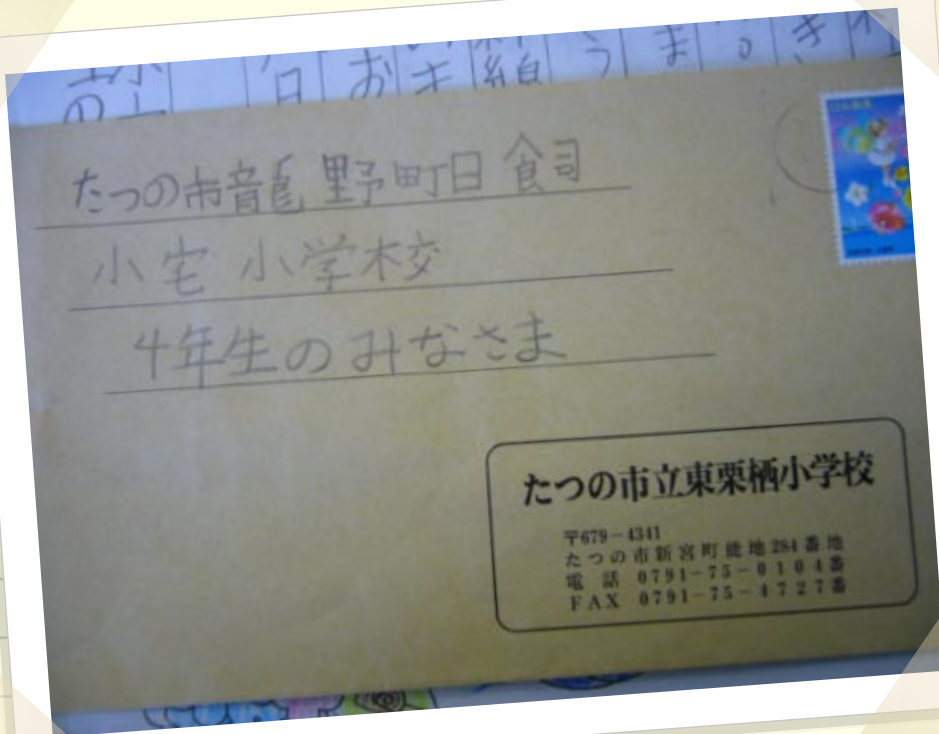 たつの市龍野町日飼
小宅小学校
4年生のみなさま
たつの市立東栗栖小学校
〒679-4341
たつの市新宮町能地284番地
電話 0791-75-0104番
FAX 0791-75-4727番